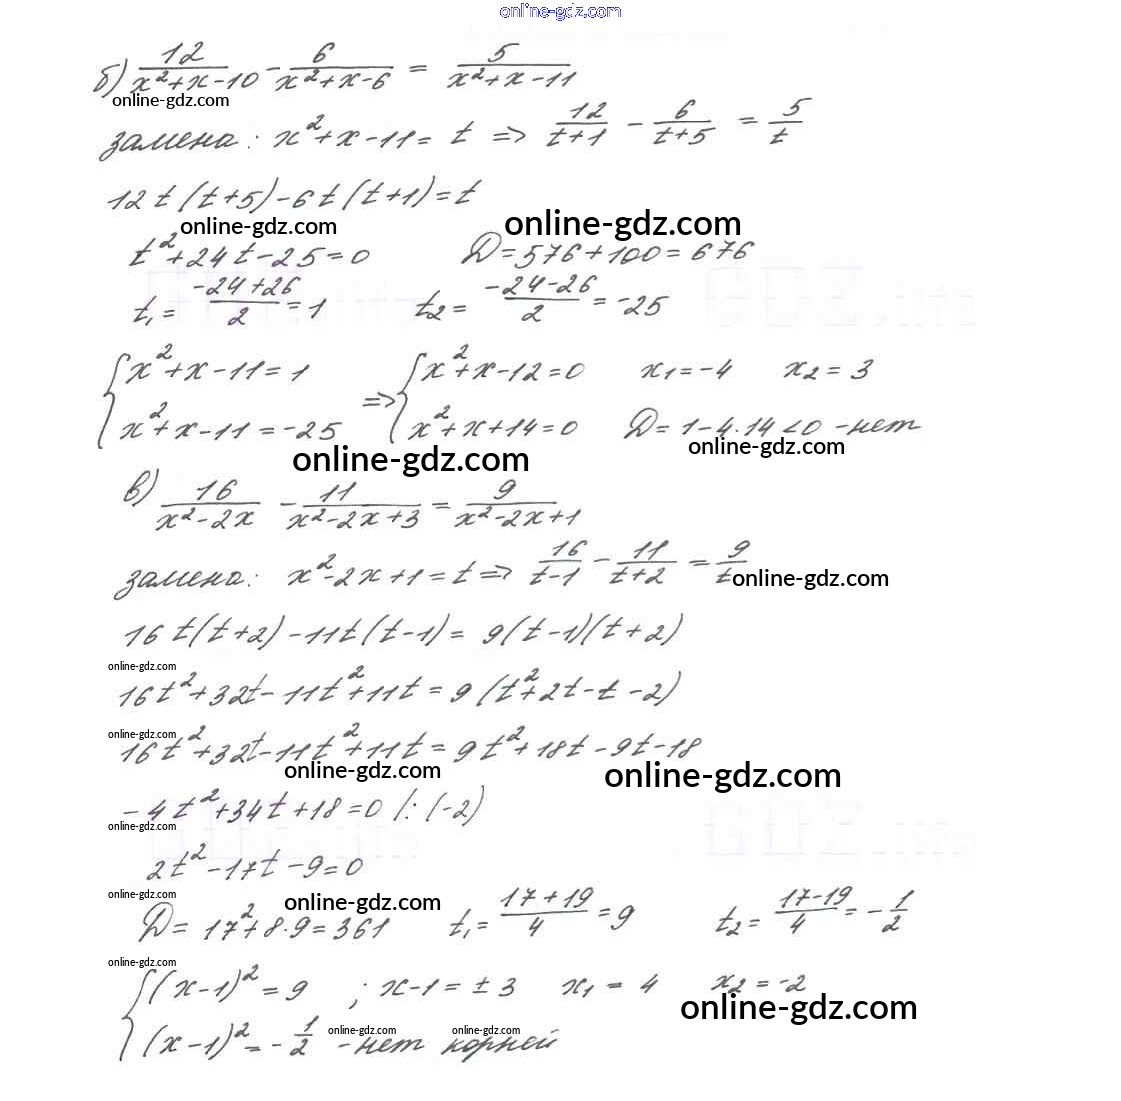 online-gdz.com
б) 12/(x²+x-10) - 6/(x²+x-6) = 5/(x²+x-11)
online-gdz.com
замена: x²+x-11 = t => 12/(t+1) - 6/(t+5) = 5/t
12t(t+5)-6t(t+1)=t
online-gdz.com online-gdz.com
t²+24t-25=0 D=576+100=676
t₁= (-24+26)/2 =1 t₂= (-24-26)/2 = -25
{ x²+x-11=1 => { x²+x-12=0 x₁=-4 x₂=3
x²+x-11=-25 x²+x+14=0 D=1-4·14<0 -нет
online-gdz.com online-gdz.com
в) 16/(x²-2x) - 11/(x²-2x+3) = 9/(x²-2x+1)
замена: x²-2x+1=t => 16/(t-1) - 11/(t+2) = 9/t online-gdz.com
16t(t+2)-11t(t-1)= 9(t-1)(t+2)
online-gdz.com
16t²+32t-11t²+11t=9(t²+2t-t-2)
online-gdz.com
16t²+32t-11t²+11t=9t²+18t-9t-18
online-gdz.com online-gdz.com
-4t²+34t+18=0 /:(-2)
online-gdz.com
2t²-17t-9=0
online-gdz.com online-gdz.com
D= 17²+8·9=361 t₁= (17+19)/4 =9 t₂= (17-19)/4 = -1/2
online-gdz.com
{ (x-1)²=9 ; x-1=±3 x₁=4 x₂=-2
online-gdz.com
(x-1)²=-1/2 -нет корней
online-gdz.com online-gdz.com